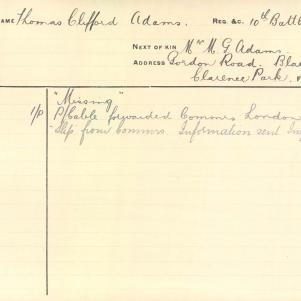 NAME Thomas Clifford Adams. REG. &C. 10th Battt
NEXT OF KIN Mr M G Adams.
ADDRESS Gordon Road. Blac
Clarence Park, F
"Missing"
1/P P/Cable forwarded Commrs London
Slip from Commrs. Information sent